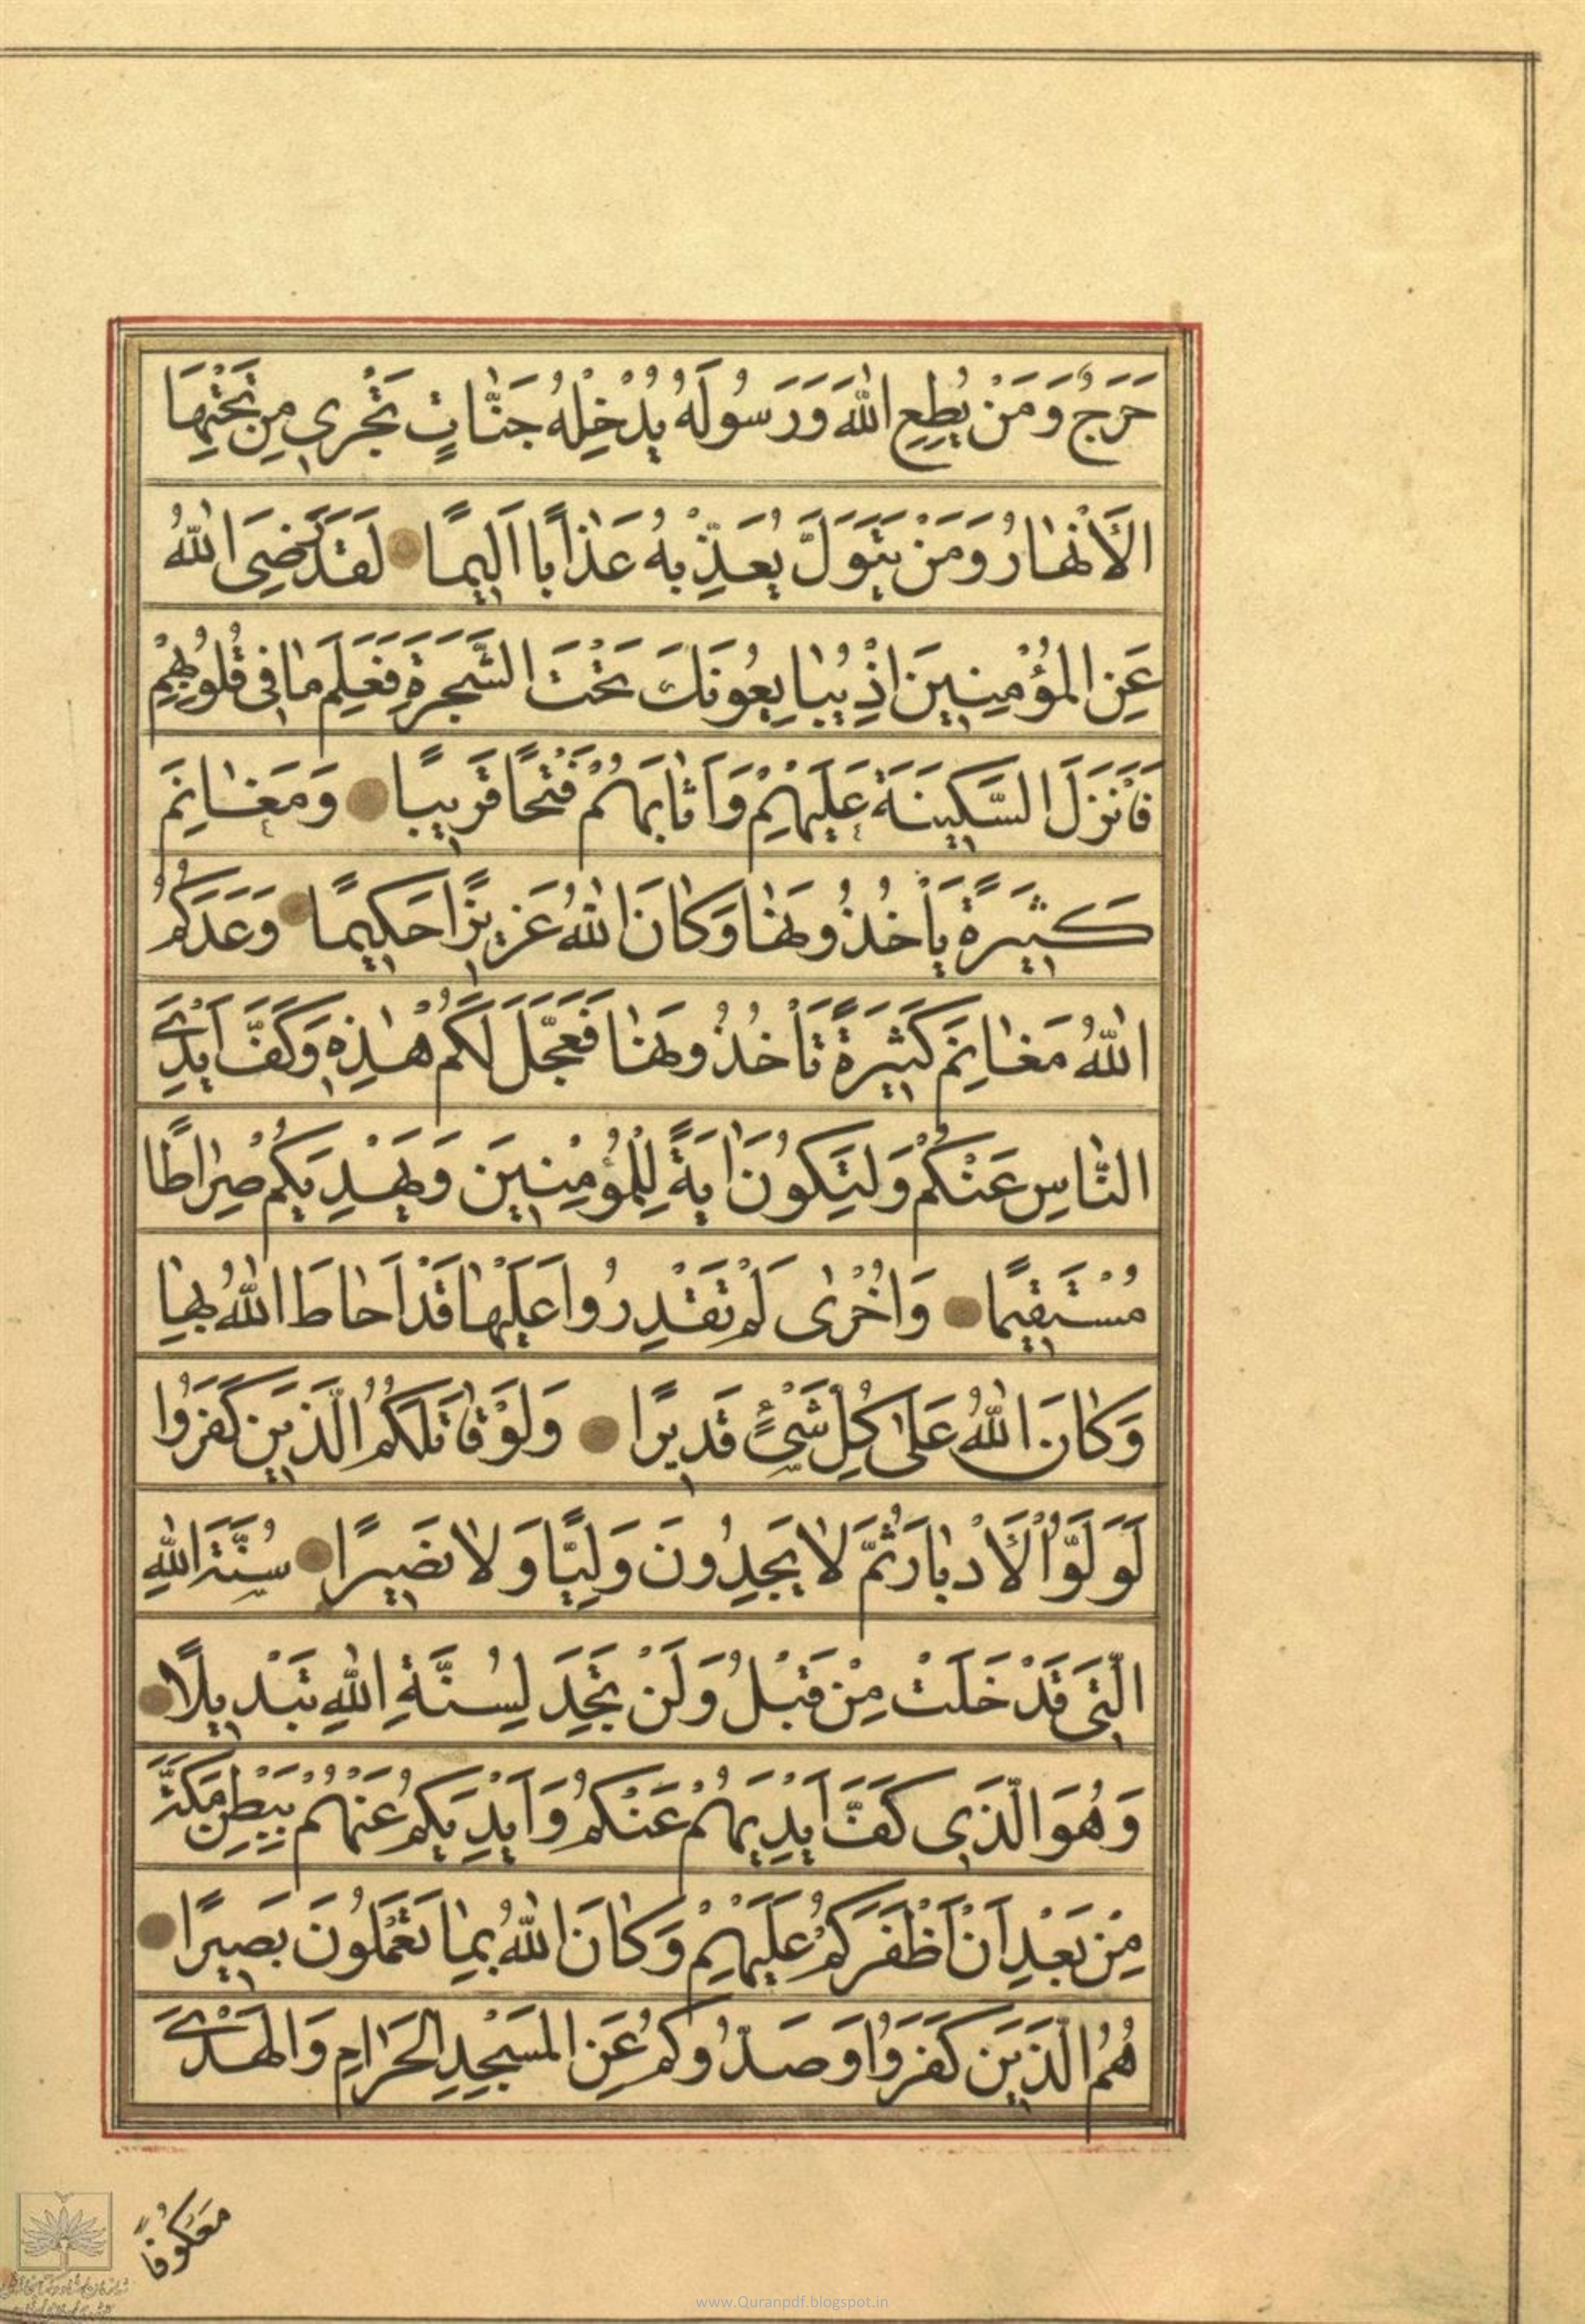 حَرَجٌ وَمَنْ يُطِعِ اللّٰهَ وَرَسُولَهُ يُدْخِلْهُ جَنّٰاتٍ تَجْرِي مِنْ تَحْتِهَا
الْأَنْهٰارُ وَمَنْ يَتَوَلَّ يُعَذِّبْهُ عَذٰابًا اَلِيمًا لَقَدْ رَضِيَ اللّٰهُ
عَنِ الْمُؤْمِنِينَ اِذْ يُبٰايِعُونَكَ تَحْتَ الشَّجَرَةِ فَعَلِمَ مٰا فِي قُلُوبِهِمْ
فَأَنْزَلَ السَّكِينَةَ عَلَيْهِمْ وَاَثٰابَهُمْ فَتْحًا قَرِيبًا وَمَغٰانِمَ
كَثِيرَةً يَأْخُذُونَهٰا وَكٰانَ اللّٰهُ عَزِيزًا حَكِيمًا وَعَدَكُمُ
اللّٰهُ مَغٰانِمَ كَثِيرَةً تَأْخُذُونَهٰا فَعَجَّلَ لَكُمْ هٰذِهِ وَكَفَّ اَيْدِيَ
النّٰاسِ عَنْكُمْ وَلِتَكُونَ اٰيَةً لِلْمُؤْمِنِينَ وَيَهْدِيَكُمْ صِرٰاطًا
مُسْتَقِيمًا وَاُخْرٰى لَمْ تَقْدِرُوا عَلَيْهٰا قَدْ اَحٰاطَ اللّٰهُ بِهٰا
وَكٰانَ اللّٰهُ عَلٰى كُلِّ شَيْءٍ قَدِيرًا وَلَوْ قٰاتَلَكُمُ الَّذِينَ كَفَرُوا
لَوَلَّوُا الْأَدْبٰارَ ثُمَّ لٰا يَجِدُونَ وَلِيًّا وَلٰا نَصِيرًا سُنَّةَ اللّٰهِ
الَّتِي قَدْ خَلَتْ مِنْ قَبْلُ وَلَنْ تَجِدَ لِسُنَّةِ اللّٰهِ تَبْدِيلًا
وَهُوَ الَّذِي كَفَّ اَيْدِيَهُمْ عَنْكُمْ وَاَيْدِيَكُمْ عَنْهُمْ بِبَطْنِ مَكَّةَ
مِنْ بَعْدِ اَنْ اَظْفَرَكُمْ عَلَيْهِمْ وَكٰانَ اللّٰهُ بِمٰا تَعْمَلُونَ بَصِيرًا
هُمُ الَّذِينَ كَفَرُوا وَصَدُّوكُمْ عَنِ الْمَسْجِدِ الْحَرٰامِ وَالْهَدْيَ
مَعْكُوفًا
www.Quranpdf.blogspot.in